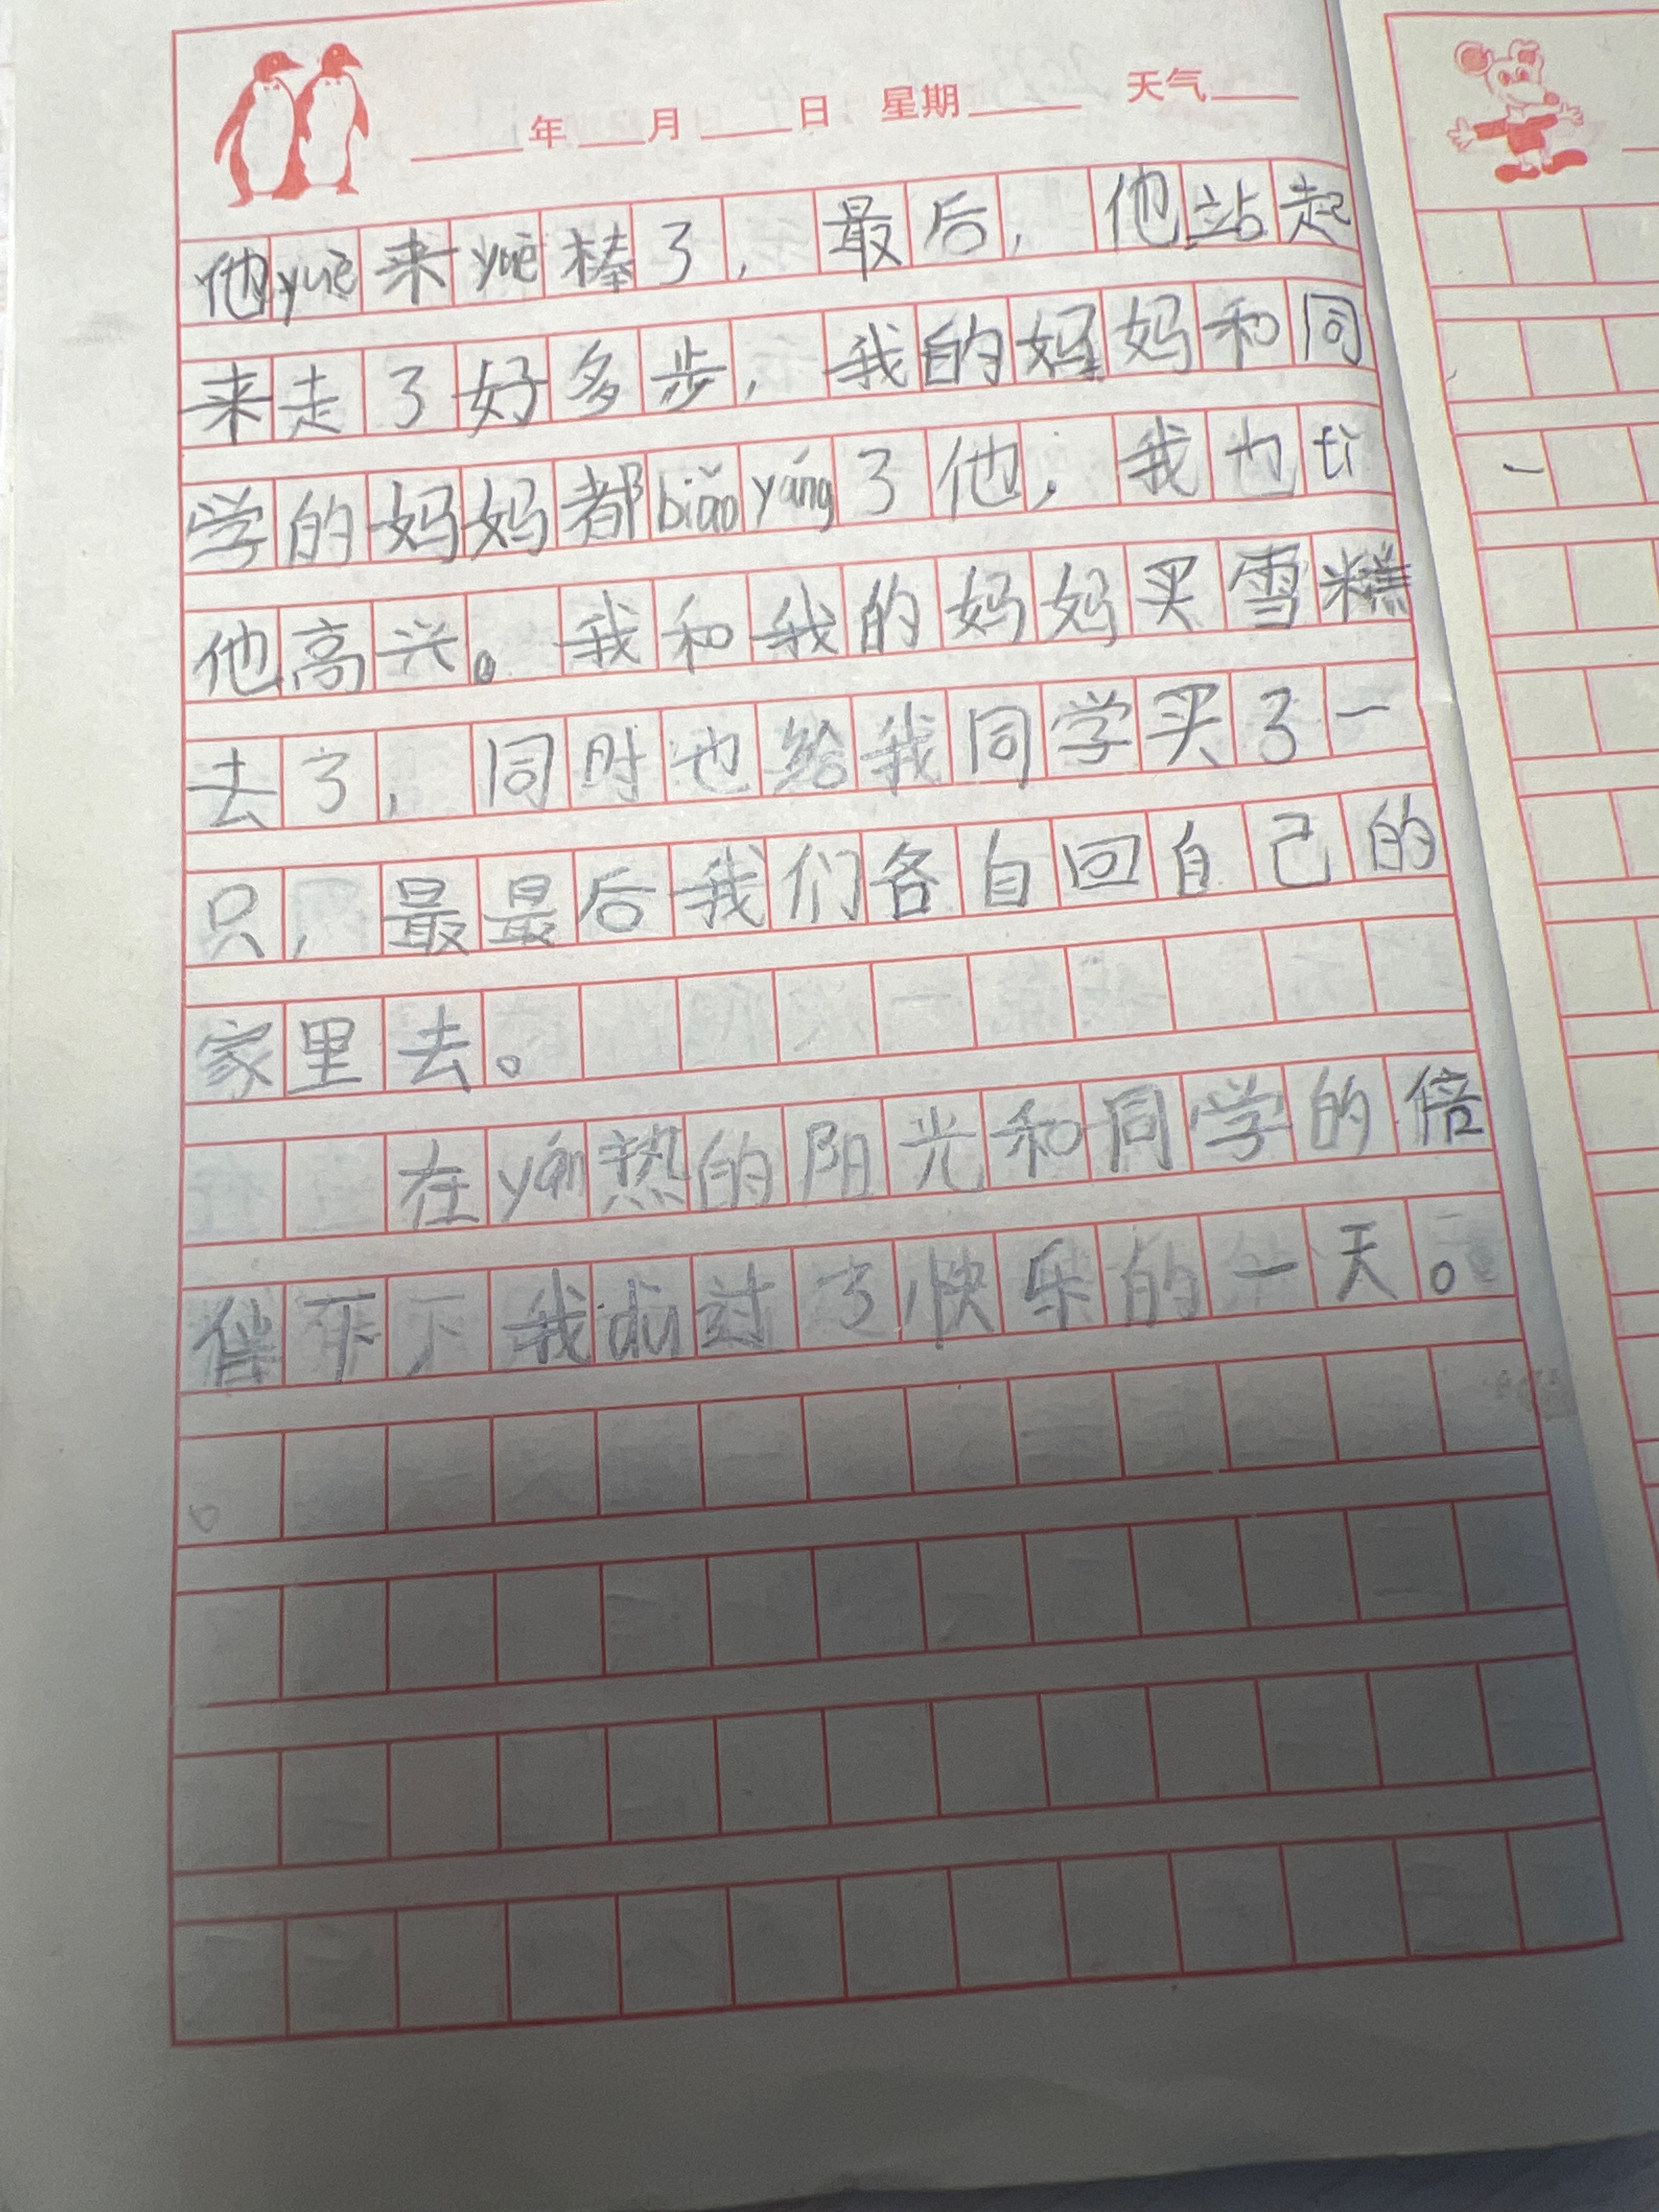 年 月 日 星期 天气
他yuè来yuè棒了，最后，他站起
来走了好多步，我的妈妈和同
学的妈妈都biǎo yáng了他，我也tì
他高兴。我和我的妈妈买雪糕
去了，同时也给我同学买了一
只，最最后我们各自回自己的
家里去。
在yán热的阳光和同学的倍
伴下 我dù过了快乐的一天。